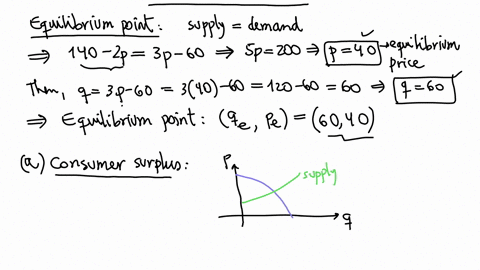 Equilibrium point: supply = demand
⇒ 140-2p = 3p-60 ⇒ 5p=200 ⇒ p=40 → equilibrium price
Then, q = 3p-60 = 3(40)-60 = 120-60 = 60 ⇒ q=60
⇒ Equilibrium point: (qe, pe) = (60,40)
(a) Consumer surplus:
P
supply
q